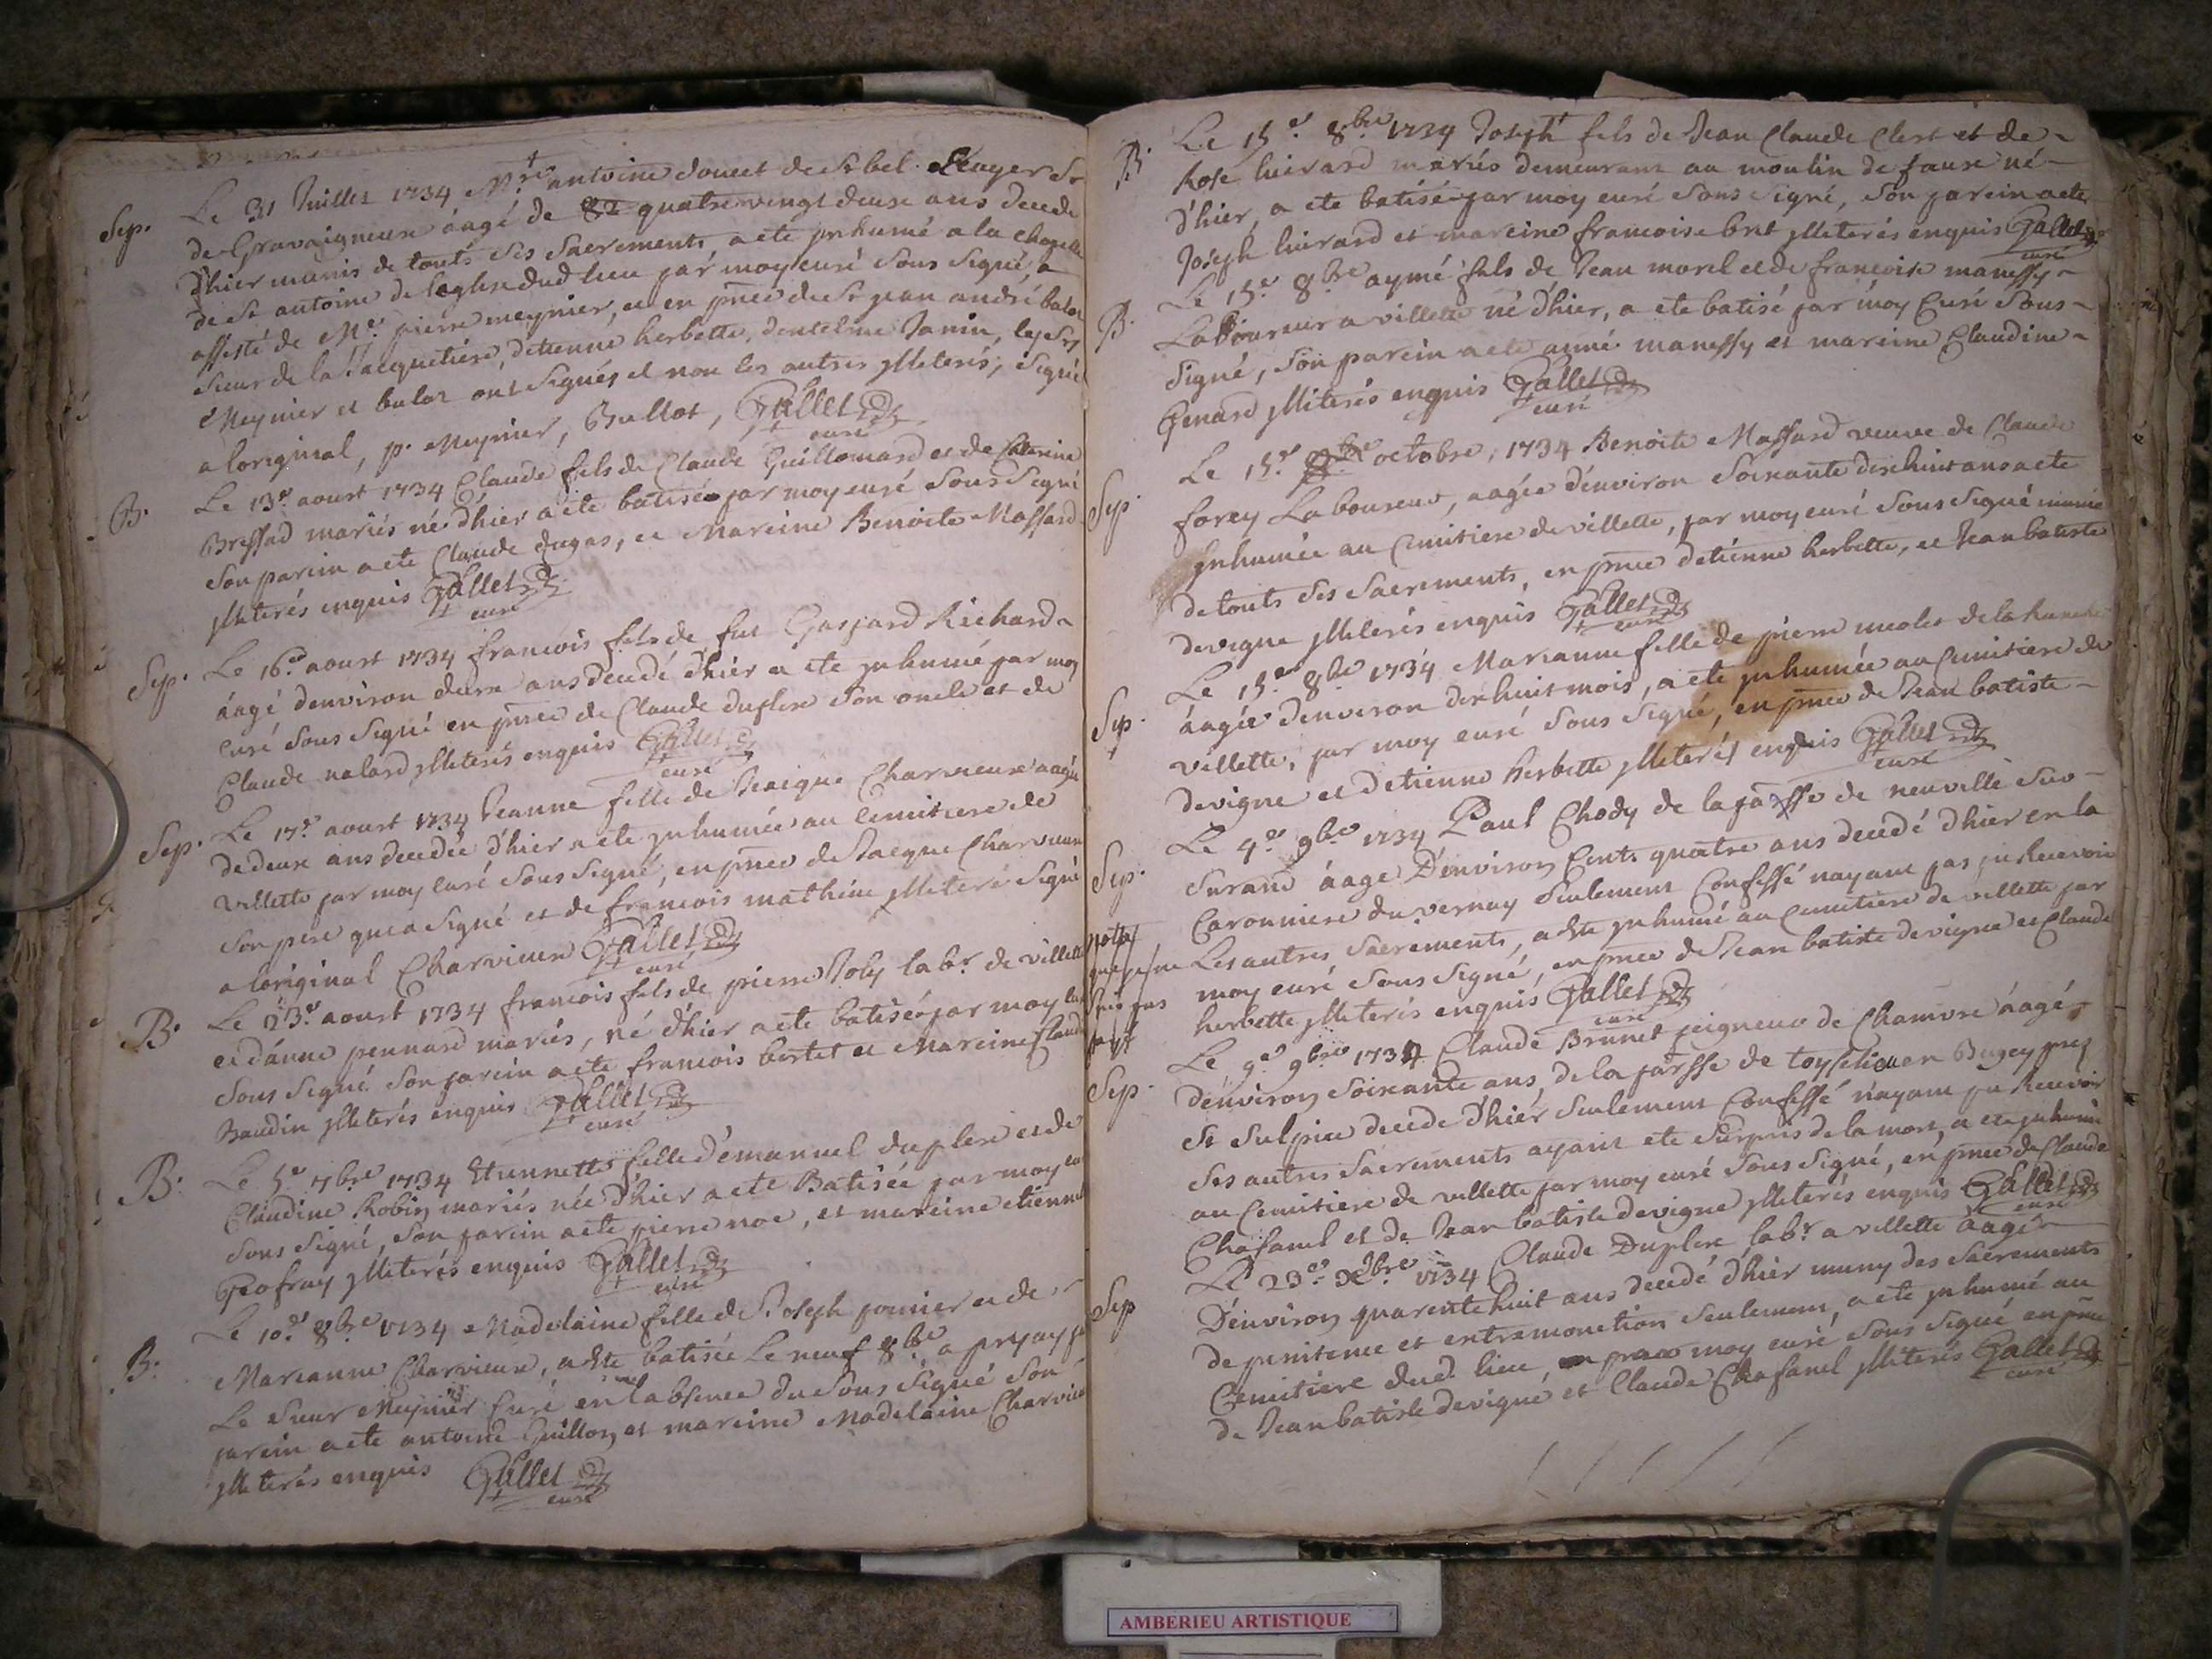 Sep. Le 31 Juillet 1734 Mre antoine donect de St bel Ecuyer Sr
de Gravaigneux âagé de 82 quatrevingt deux ans decede
d'hier munis de touts ses Sacrements, a ete jnhumé a la chapelle
de St antoine de leglise dud lieu par moy curé sous signé, a
assisté de Mre pierre meynier, et en pnce du Sr jean andré bulot
sieur de la Jacquetiere, detienne herbette, denselme Janin, les Srs
Meynier et bulot ont signés et non les autres jlleterés, signé
a loriginal, p. Meynier, Bullot, Gallet
curé
B. Le 13e aoust 1734 Claude fils de Claude Guillomard et de Caterine
Bressad mariés né d'hier a ete batisé par moy curé sous signé
son parein a ete Claude dugas, et Mareine Benoite Massard
jlleterés enquis Gallet
curé
Sep. Le 16e aoust 1734 francois fils de fut Gaspard Richard
áagé denviron deux ans decedé d'hier a ete jnhumé par moy
curé sous signé en pnce de Claude duplex son oncle et de
Claude nalard jlleterés enquis Gallet
curé
Sep. Le 17e aoust 1734 Jeanne fille de Jacique Charvieux aagée
de deux ans decedée d'hier a ete jnhumée au Cemitiere de
villette par moy curé sous signé, en pnce de Jacque Charvieux
son pere qui a signé et de francois mathieu jlleteré signé
a loriginal Charvieux Gallet
curé
B. Le 23e aoust 1734 francois fils de pierre Joly labr. de villette
et d'anne pennard mariés, né d'hier a ete batisé par moy curé
sous signé son parein a ete francois bertet et Mareine Claude
Baudin jlleterés enquis Gallet
curé
B. Le 5e 7bre 1734 Etiennette fille d'émanuel duplex et de
Claudine Robin mariés née d'hier a ete Batisée par moy cu
sous signé, son parein a ete pierre noe, et mareine etiennet
Geofray jlleterés enquis Gallet
curé
B. Le 10e 8bre 1734 Madelaine fille de Joseph jounier et de
Marianne Charvieux, a ete batisée Le neuf 8bre a pry
Le sieur Meynier Curé en labsence du sous signé son
parein a ete antoine Guillon et mareine Madelaine Charvieu
jlleterés enquis Gallet
curé
B. Le 15e 8bre 1734 Joseph fils de Jean Claude Clert et de
Rose luirard mariés demeurant au moulin de faux né
d'hier, a ete batisé par moy curé sous signé, son parein a ete
Joseph luirard et mareine francoise bret jlleterés enquis Gallet
curé
B. Le 15e 8bre aymé fils de Jean morel et de francoise manessy
Laboureur a villette né d'hier, a ete batisé par moy Curé sous
signé, son parein a ete aymé manessy et mareine Claudine
Genard jlliterés enquis Gallet
curé
Sep. Le 15e octobre, 1734 Benoite Massard veuve de Claude
forey Laboureur, aagée d'environ soixante dixhuit ans a ete
jnhumée au Cemitiere de villette, par moy curé sous signé munie
de touts ses sacrements, en pnce detienne herbette, et Jean batiste
devigne jlleterés enquis Gallet
curé
Sep. Le 15e 8bre 1734 Marianne fille de pierre
áagée denviron dixhuit mois, a ete jnhumée au Cemitiere de
villette, par moy curé sous signé, en pnce de Jean batiste
devigne et detienne herbette jlleterés enquis Gallet
curé
Sep. Le 4e 9bre 1734 Paul Chody de la parsse de neuville sur
surand áagé d'environ Cent quatre ans decedé d'hier en la
Caronniere du vernay seulement Confessé nayant pas pu Recevoir
nota que je ne suis pas payé
Les autres sacrements, a ete jnhumé au Cemitiere de villette par
moy curé sous signé, en pnce de Jean batiste devigne et Claude
herbette jlleterés enquis Gallet
curé
Sep. Le 9e 9bre 1734 Claude Brunet peigneur de Chamvre áagé
d'environ soixante ans, de la parsse de en Bugey prez
St Sulpice decede d'hier seulement Confessé n'ayant pu Recevoir
ses autres sacrements ayant ete surpris de la mort, a ete jnhumé
au Cemitiere de villette par moy curé sous signé, en pnce de Claude
Chafanel et de Jean batiste devigne jlleterés enquis Gallet
curé
Sep Le 23e Xbre 1734 Claude Duplex labr. a villette áagé
D'environ quarente huit ans decedé d'hier muny des sacrements
de penitence et extremonction seulement, a ete jnhumé au
Cemitiere dud. lieu, par moy curé sous signé en pnce
de Jean batiste devigne et Claude Chafanel jlleterés Gallet
curé
AMBERIEU ARTISTIQUE